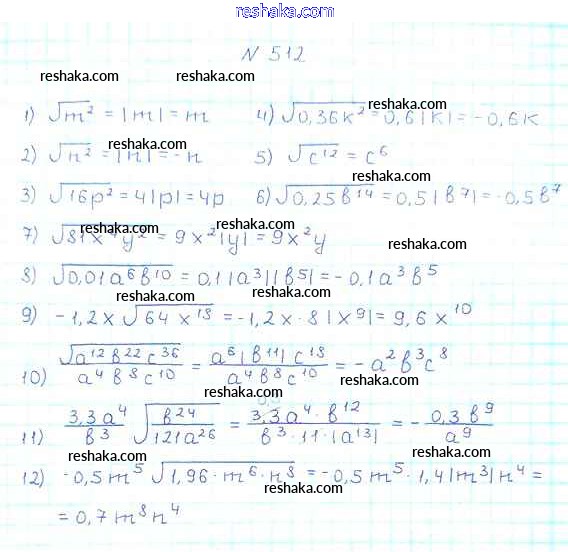 reshaka.com
N 512
reshaka.com reshaka.com
reshaka.com
1) √m² = |m| = m 4) √0,36k² = 0,6|k| = -0,6k
reshaka.com
2) √n² = |n| = -n 5) √c¹² = c⁶
reshaka.com
3) √16p² = 4|p| = 4p 6) √0,25b¹⁴ = 0,5|b⁷| = -0,5b⁷
reshaka.com reshaka.com
7) √81x⁴y² = 9x²|y| = 9x²y
reshaka.com
8) √0,01a⁶b¹⁰ = 0,1|a³||b⁵| = -0,1a³b⁵
reshaka.com reshaka.com
9) -1,2x √64x¹⁸ = -1,2x · 8|x⁹| = 9,6x¹⁰
reshaka.com
10) √a¹²b²²c³⁶ / a⁴b⁸c¹⁰ = a⁶|b¹¹|c¹⁸ / a⁴b⁸c¹⁰ = -a²b³c⁸
reshaka.com reshaka.com
11) 3,3a⁴ / b³ √b²⁴ / 121a²⁶ = 3,3a⁴ · b¹² / b³ · 11 · |a¹³| = - 0,3b⁹ / a⁹
reshaka.com reshaka.com
12) -0,5m⁵ √1,96 · m⁶ · n⁸ = -0,5m⁵ · 1,4|m³|n⁴ =
reshaka.com reshaka.com
= 0,7m⁸n⁴